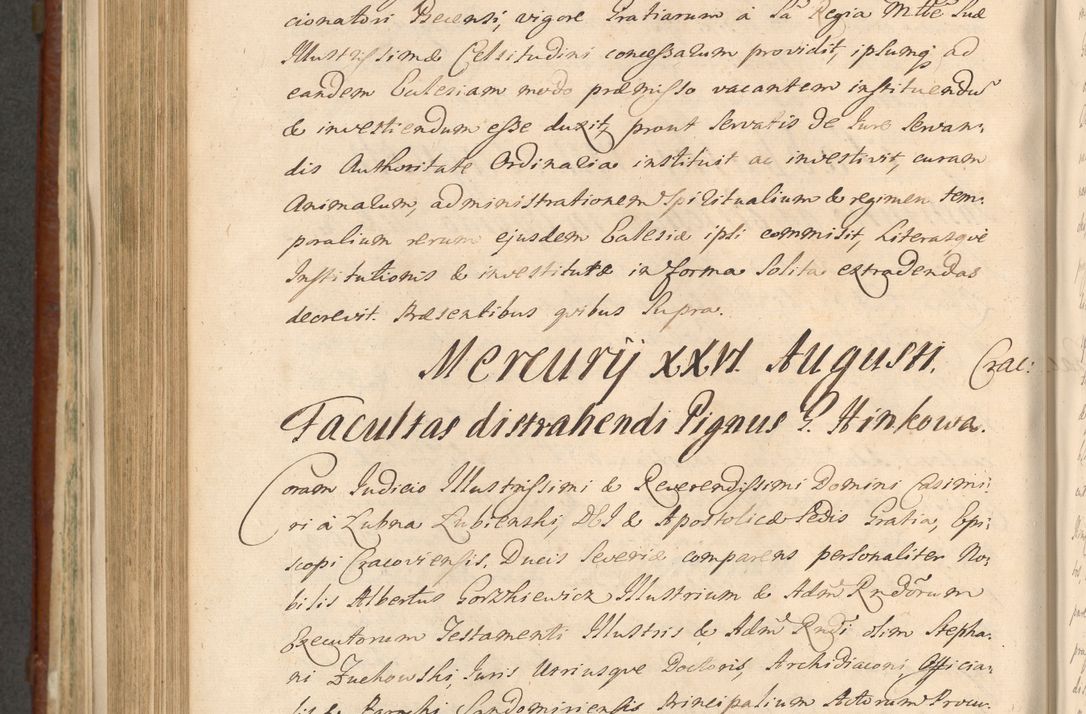 cionatori Becensi, vigore Gratiarum à Sã Regia Mtte Suæ
Illustrissimæ Celsitudini concessarum providit, ipsumq ad
eandem Ecclesiam modo præmisso vacantem instituendũ
& investiendum esse duxit, prout servatis de Jure servan-
dis Authoritate Ordinaria instituit ac investivit, curam
Animarum, administrationem Spiritualium & regimen tem-
poralium rerum ejusdem Ecclesiæ ipsi commisit, Literasque
Institutionis & investituræ in forma solita extradendas
decrevit. Præsentibus quibus supra.
Mercurij XXVI. Augusti. Crac:
Facultas distrahendi Pignus G. Hinkowa.
Coram Judicio Illustrissimi & Reverendissimi Domini Casimi-
ri à Łubna Łubienski, DEI & Apostolicæ Sedis Gratia, Epi-
scopi Cracoviensis, Ducis Severiæ comparens personaliter No-
bilis Albertus Gorzkiewicz Illustrium & Adm Rndõrum
Executorum Testamenti Illustris & Adm Rndi olim Stepha-
ni Żuchowski, Juris Utriusque Doctoris, Archidiaconi, Officia-
lis & Parochi Sandomiriensis Principalium Actorum Procu-